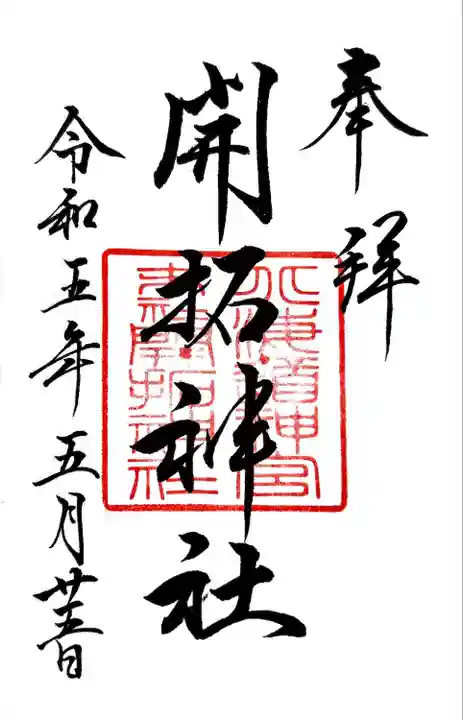 奉拝
開拓神社
北海道神宮
末社開拓神社
令和五年五月廿五日